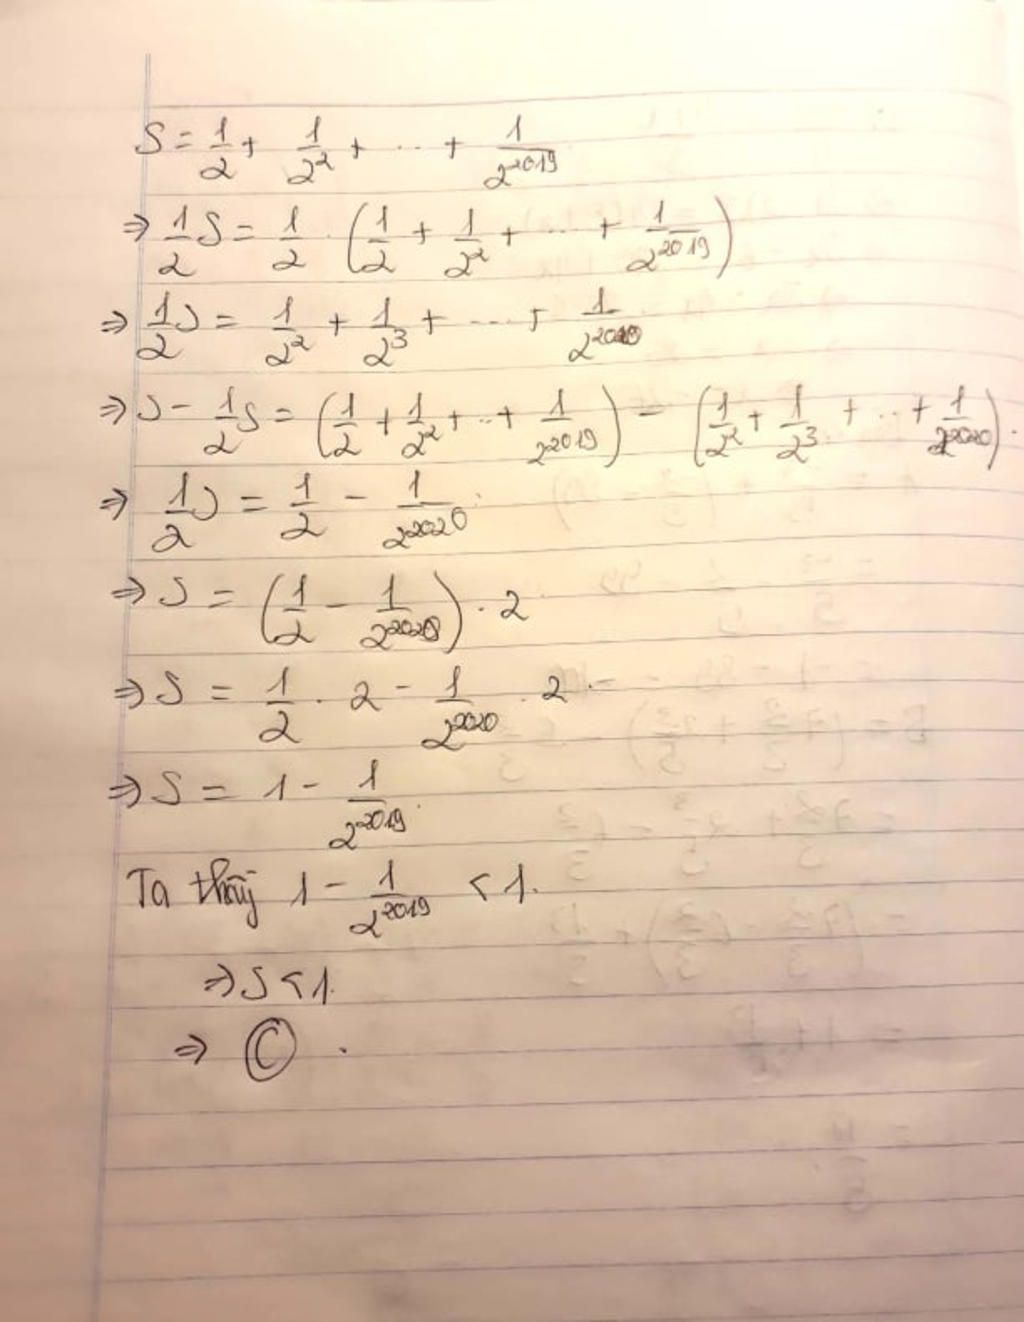 S = 1/2 + 1/2² + ... + 1/2²⁰¹⁹
⇒ 1/2 S = 1/2 . (1/2 + 1/2² + ... + 1/2²⁰¹⁹)
⇒ 1/2 S = 1/2² + 1/2³ + ... + 1/2²⁰²⁰
⇒ S - 1/2 S = (1/2 + 1/2² + .. + 1/2²⁰¹⁹) - (1/2² + 1/2³ + ... + 1/2²⁰²⁰).
⇒ 1/2 S = 1/2 - 1/2²⁰²⁰
⇒ S = (1/2 - 1/2²⁰²⁰) . 2
⇒ S = 1/2 . 2 - 1/2²⁰²⁰ . 2
⇒ S = 1 - 1/2²⁰¹⁹.
Ta thấy 1 - 1/2²⁰¹⁹ < 1.
⇒ S < 1.
⇒ Ⓒ .